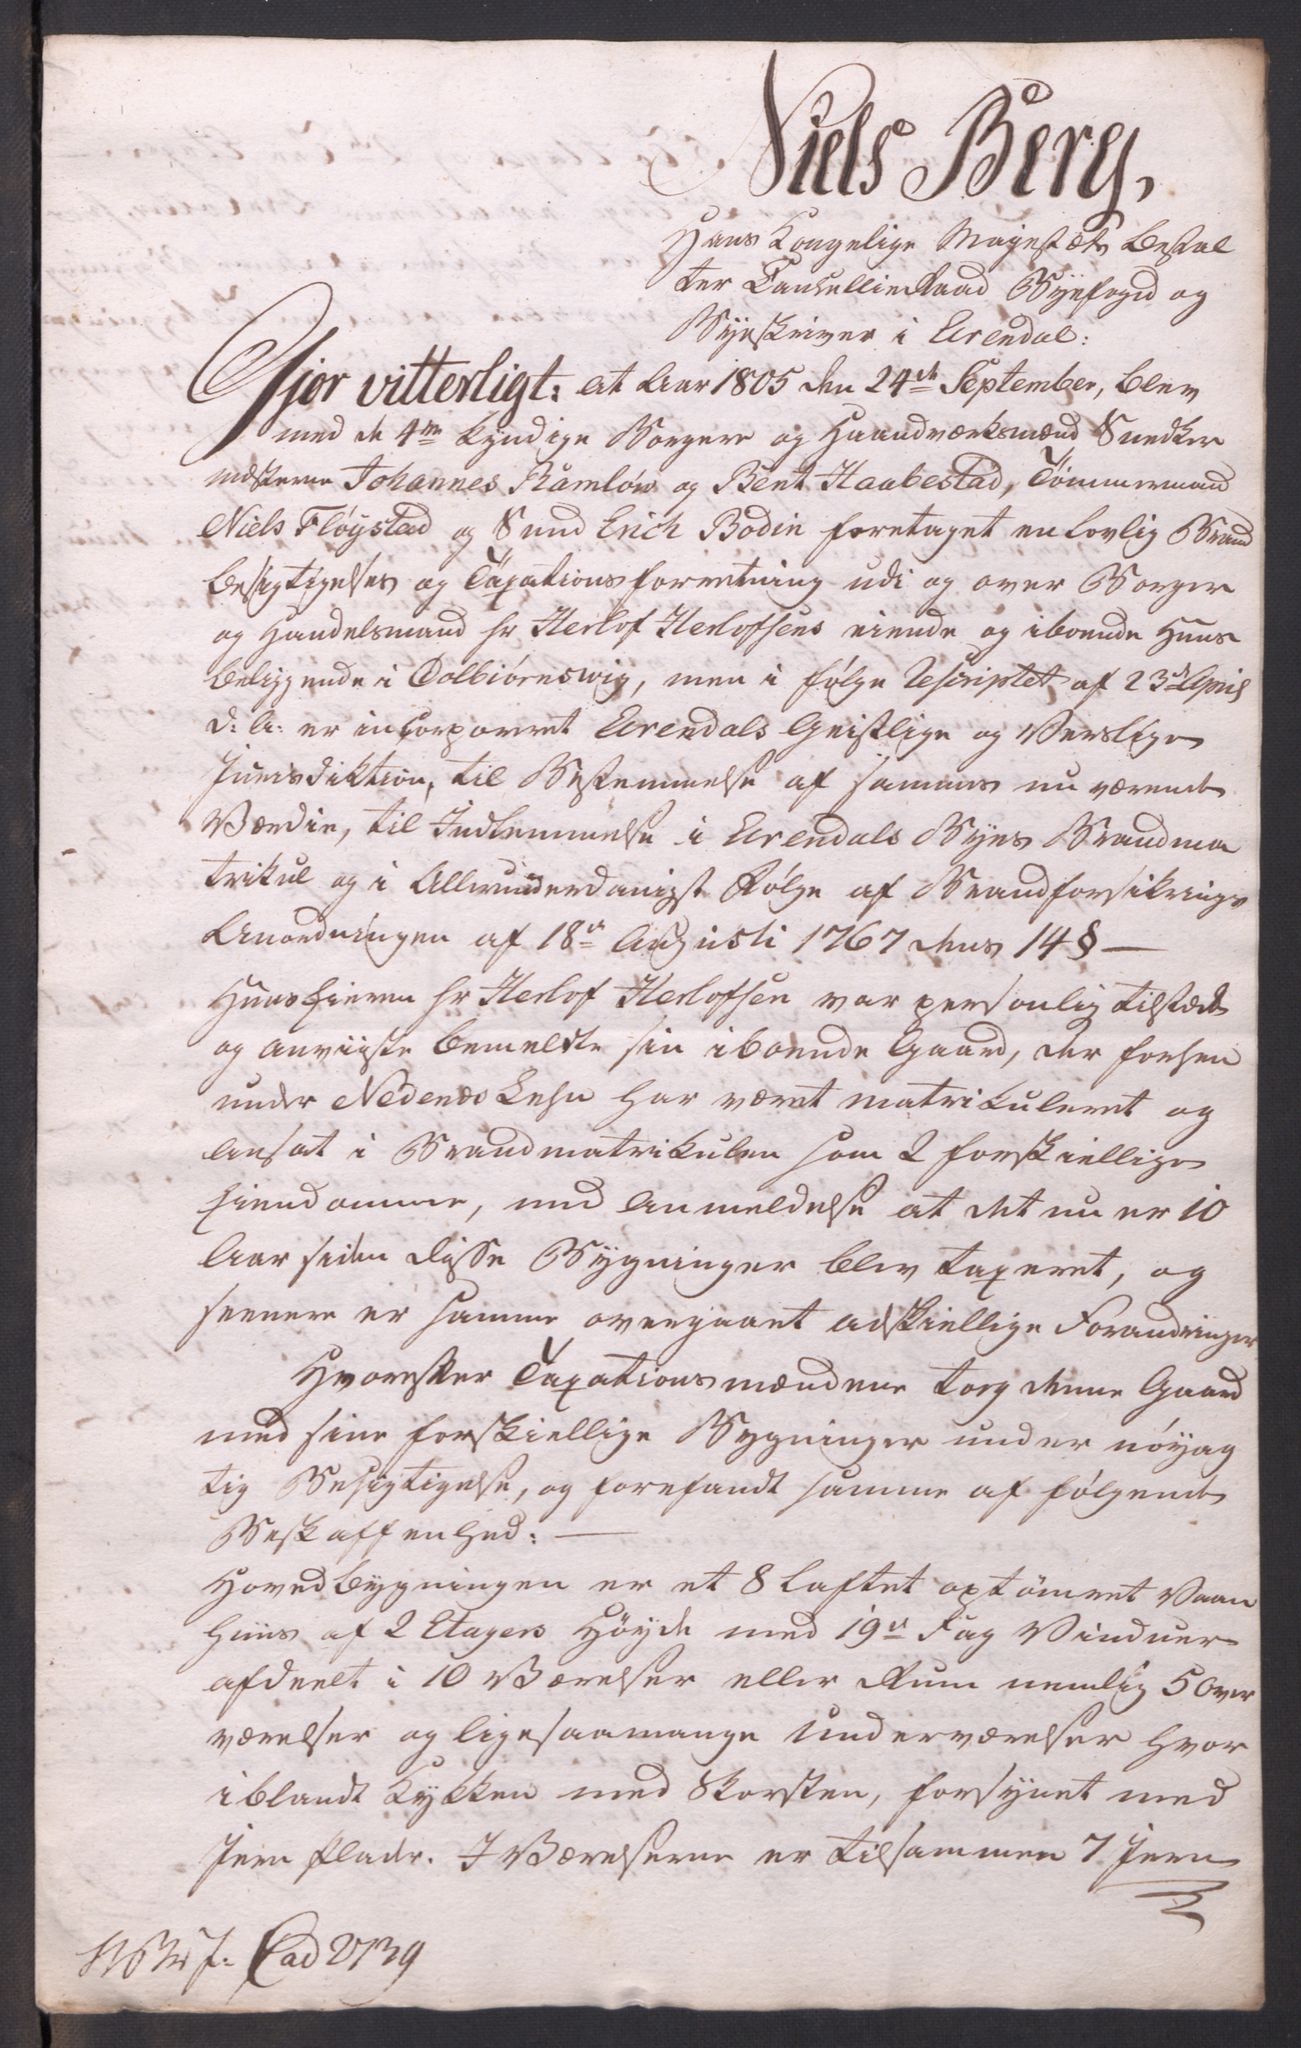 Niels Berg,
Hans Kongelige Mayestæts bestal
ter Cancellie Raad Byefogd og
Byeskriver i Arendal:
Gjør vitterligt: at Aar 1805 den 24de September, blev
med de 4re kyndige Borgere og Haandværksmænd Snedker
mestrene Johannes Ramløw og Bent Haabestad, Tømmermand
Niels Fløystad og Smed Erich Bodin foretaget en lovlig Brand
besigtigelses og Taxationsforretning udi og over Borger
og Handelsmand Hr Herlof Herlofsens eiende og iboende Huus
beliggende i Colbiørnswig, men i følge Rescriptet af 23de April
d: A: er incorporeret Arendals Geistlige og Verslige
Jurisdiktion, til Bestemmelse af sammes nu værende
Værdie, til Indlemmelse i Arendals Byes Brandma
trikul og i Allerunderdanigst Følge af Brandforsikrings
Anordningen af 18de Augusti 1767 dens 14 §
Huuseieren Hr Herlof Herlofsen var personlig tilstæde
og anviiste bemeldte sin iboende Gaard, der forhen
under Nedenæs Lehn har været matrikuleret og
ansat i Brandmatrikulen som 2 forskiellige
Eiendomme, med Anmeldelse at det nu er 10
Aar siden disse Bygninger blev taxeret, og
seenere er samme overgaaet adskiellige Forandringer
Hvorefter Taxationsmændene tog denne Gaard
med sine forskiellige Bygninger under nøyag
tig Besigtigelse, og forefandt samme af følgende
Beskaffenhed:
Hovedbygningen er et 8 laftet optømret Vaan
huus af 2 Etagers Høyde med 19 Fag Vinduer
afdeelt i 10 Værelser eller Rum nemlig 5 Over
værelser og ligesaamange Underværelser hvor
iblandt Kykken med Skorsten, forsynet med
Jern Plade. I Værelserne er tilsammen 7 Jern
Cad 2739